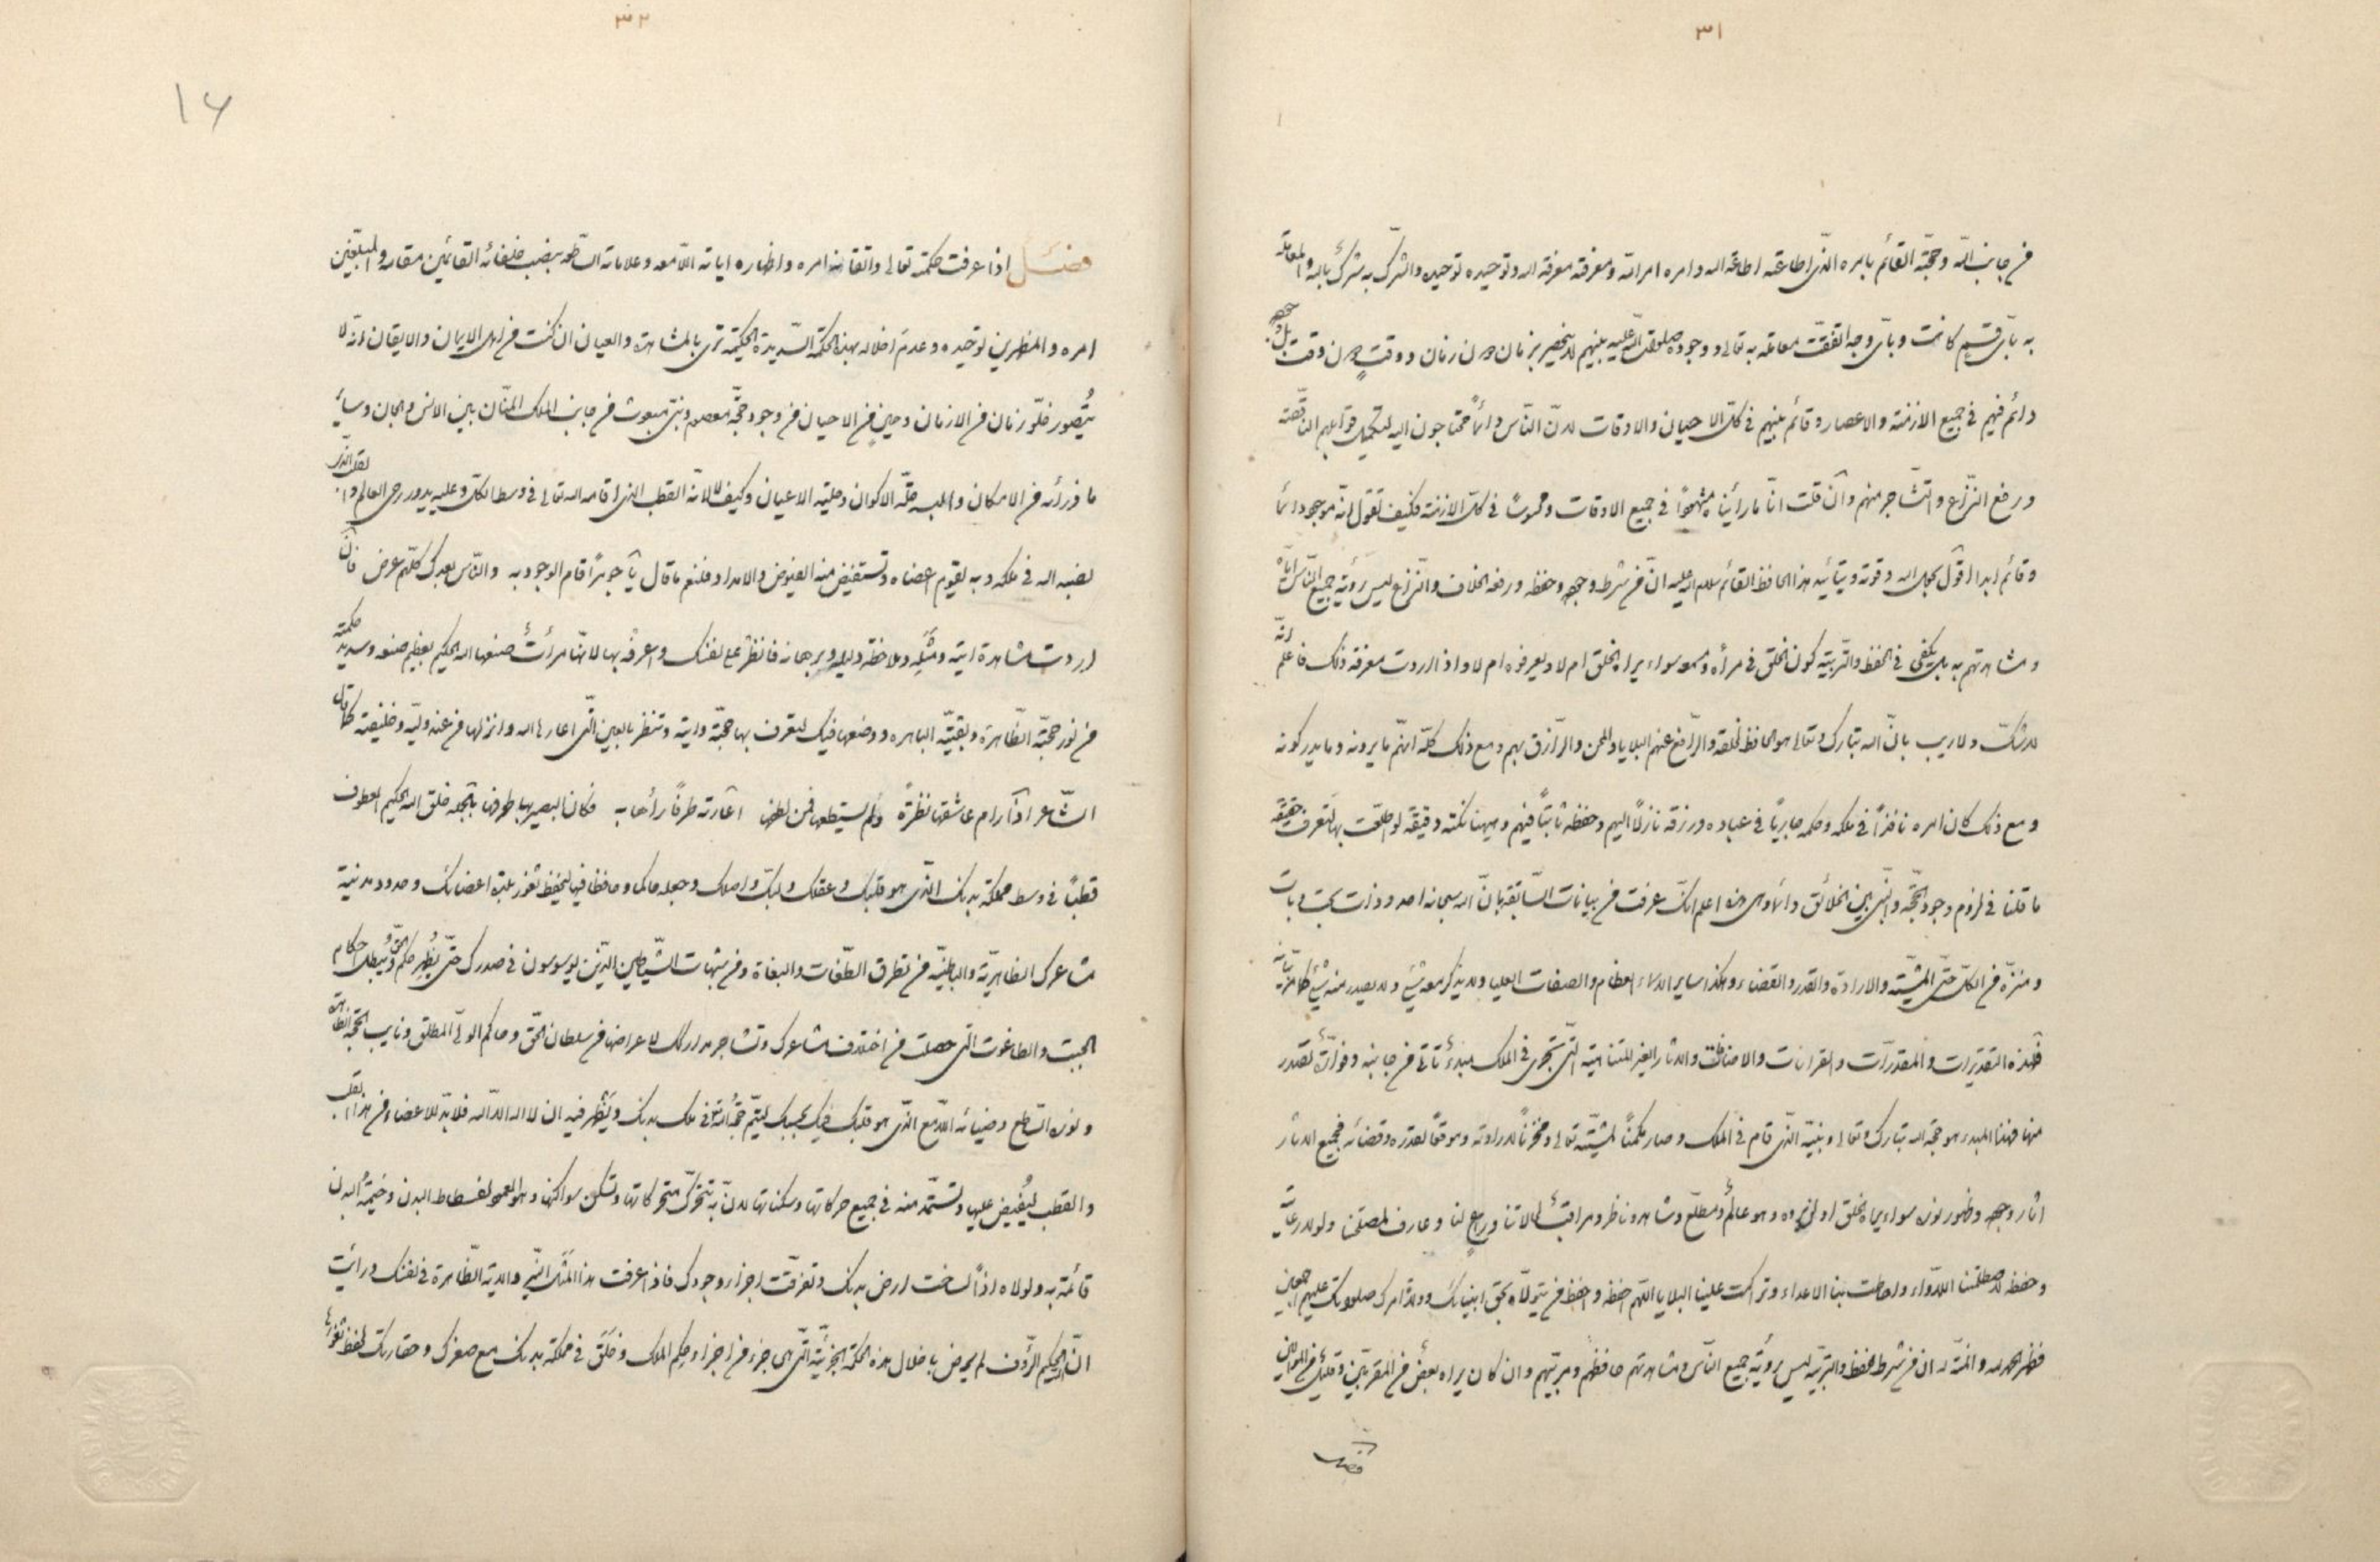 ٣١
من جانب اللّه وحجّته القائم بامره الّذي اطاعته اطاعة اللّه وامره امر اللّه ومعرفته معرفة اللّه وتوحيده توحيده والشرك به شرك باللّه والمعاملة
به بايّ قسم كانت وبايّ وجه اتفقت معاملة به تعالى ووجوده صلوات اللّه عليه بينهم لا ينحصر بزمان دون زمان ووقتٍ دون وقت بل
دائم فيهم في جميع الازمنة والاعصار وقائم بينهم في كلّ الاحيان والاوقات لانّ النّاس دائماً محتاجون اليه لتكميل قوابلهم النّاقصة
ورفع النّزاع والتّشاجر منهم وان قلت انّا ما رأيناه مشهوداً في جميع الاوقات ومحسوساً في كلّ الازمنة فكيف تقول انّه موجود دائما
وقائم ابدا اقول بحول اللّه وقوته وبتأييد هذا الحافظ القائم سلام اللّه عليه انّ من شرط وجوده وحفظه ورفعه الخلاف والنّزاع ليس رؤية جميع النّاس ايّاه
ومشاهدتهم به بل يكفي في الحفظ والتّربية كون الخلق في مرآه ومسمعه سواء يراه الخلق ام لا ويعرفوه ام لا واذا اردت معرفة ذلك فاعلم انّه
لا شكّ ولا ريب بانّ اللّه تبارك وتعالى هو الحافظ لخلقه والرّافع عنهم البلايا والمحن والرّازق بهم ومع ذلك كلّه انّهم ما يرونه وما يدركونه
ومع ذلك كان امره نافذاً في ملكه وحكمه جارياً في عباده ورزقه نازلاً اليهم وحفظه ثابتاً فيهم وههنا نكتة دقيقة لو اطلعت بها لتعرف حقيقة
ما قلنا في لزوم وجود الحجّة والنّبي بين الخلائق اعلم انّك عرفت من بيانات السّابقة بانّ اللّه سبحانه احد وذات بحت وبات
ومنزّه من الكلّ حتّى المشيّة والارادة والقدر والقضاء وهكذا ساير الاسماء العظام والصفات العليا ولا يذكر معه شيء ولا يصدر منه شيء
فهذه التقديرات والمقدرات والقرانات والاضافات والاثار الغير المتناهية الّتي تجري في الملك مبدء تأتي من جانبه تصدر
منها فهذا المبدء هو حجّة اللّه تبارك وتعالى ونبيّه الّذي قام في الملك وصار مكمناً لمشيّته تعالى ومخزناً لارادته وموقعاً لقدره وقضائه فجميع الاثار
اثار وجوده وظهور نوره سواء يراه الخلق او لم يروه وهو عالمٌ ومطلع وشاهد وناظر ومراقب لحالاتنا وراعٍ لنا وعارف لمصلحتنا ولولا رعايته
وحفظه لاصطلمتنا اللأواء واحاطت بنا الاعداء وتراكمت علينا البلايا اللّهم احفظه واحفظ من يتولّاه بحق انبيائك وولاة امرك صلواتك عليهم اجمعين
فظهر بحمد اللّه والمنّة له ان من شرط الحفظ والتربية ليس رؤية جميع النّاس ومشاهدتهم حافظهم ومربيهم وان كان يراه بعضٌ من المقرّبين وقليلٌ من المؤمنين
فصل
٣٢
١٦
فصل اذا عرفت حكمته تعالى واتقانه امره واظهاره اياته اللّامعة وعلاماته السّاطعة بنصب خلفائه القائمين مقامه والمبلّغين
امره والمظهرين توحيده وعدم اخلاله بهذه الحكمة السّديدة الحكيمة ترى بالمشاهدة والعيان ان كنت من اهل الايمان والايقان انّه لا
يُتصور خلوّ زمان من الازمان وحين من الاحيان من وجود حجّة معصوم ونبيّ مبعوث من جانب الملك المنّان بين الانس والجان وسائر
ما ذرأه من الامكان والبسه حلّة الاكوان وحلية الاعيان وكيف لا لانّه القطب الذي اقامه اللّه تعالى في وسط الكلّ وعليه يدور رحى العالم
نصبه اللّه في ملكه وبه يقوم اعضاه وتستفيض منه الفيوض والامداد فلنعم ما قال يا جوهراً قام الوجود به والنّاس بعدك كلّهم عرض فان
اردت مشاهدة ايته ومَثَله وملاحظة دليله وبرهانه فانظر على نفسك واعرفه بها لانها مرآتٌ صنعها اللّه الحكيم بعظيم صنعه وسديد حكمته
من نور حجّته الظّاهرة وبقيّته الباهرة ووضعها فيك لتعرف بها حجّته وايته وتنظر بالعين الّتي اعارها اللّه وانزلها من عند وليّه وخليفته كما قال
الشّاعر اذا رام عاشقها نظرةً ولم يستطعها فمن لطفها اعارته طرفاً رآها به فكان البصير بها طرفها خلق اللّه الحكيم العطوف
قطباً في وسط مملكة بدنك الذي هو قلبك وعقلك ولبّك واصلك وجعله حاكما وحافظا فيها ليحفظ ثغور بلدة اعضائك وحدود مدنية
مشاعرك الظاهريّة والباطنيّة من تطرق الطّغات والبغاة ومن شبهات الشّياطين الّذين يوسوسون في صدرك حتّى يُظهر حكم الحقّ ويُبطل احكام
الجبت والطاغوت الّتي حصلت من اختلاف مشاعرك وتشاجر مداركك لاعراضها من سلطان الحّق وحاكم الوليّ المطلق ونايب الحجّة الظاهرة
ونوره السّاطع وضيائه اللّامع الذّي هو قلبك ليتمّ حجّة اللّه في ملك بدنك ويظهر فيه ان لا اله الّا اللّه فلا بدّ للاعضاء من هذا القلب
والقطب ليُفيض عليها وتستمدّ منه في جميع حركاتها وسكناتها لانّ به تتحرك متحركاتها وتسكن سواكنها وهو العمود لفسطاط البدن وخيمة البدن
قائمة به ولولاه اذاً لساخت ارض بدنك وتفرقت اجزاء وجودك فاذا عرفت هذا المثل النّبي والاية الظّاهرة في نفسك ورأيت
انّ الحكيم الرّؤف لم يرض باخلال هذه الحكمة الجزئيّة الّتي هي جزء من اجزاء حِكم الملك وخَلَق في مملكة بدنك مع صغرك وحقارتك لحفظ ثغورها